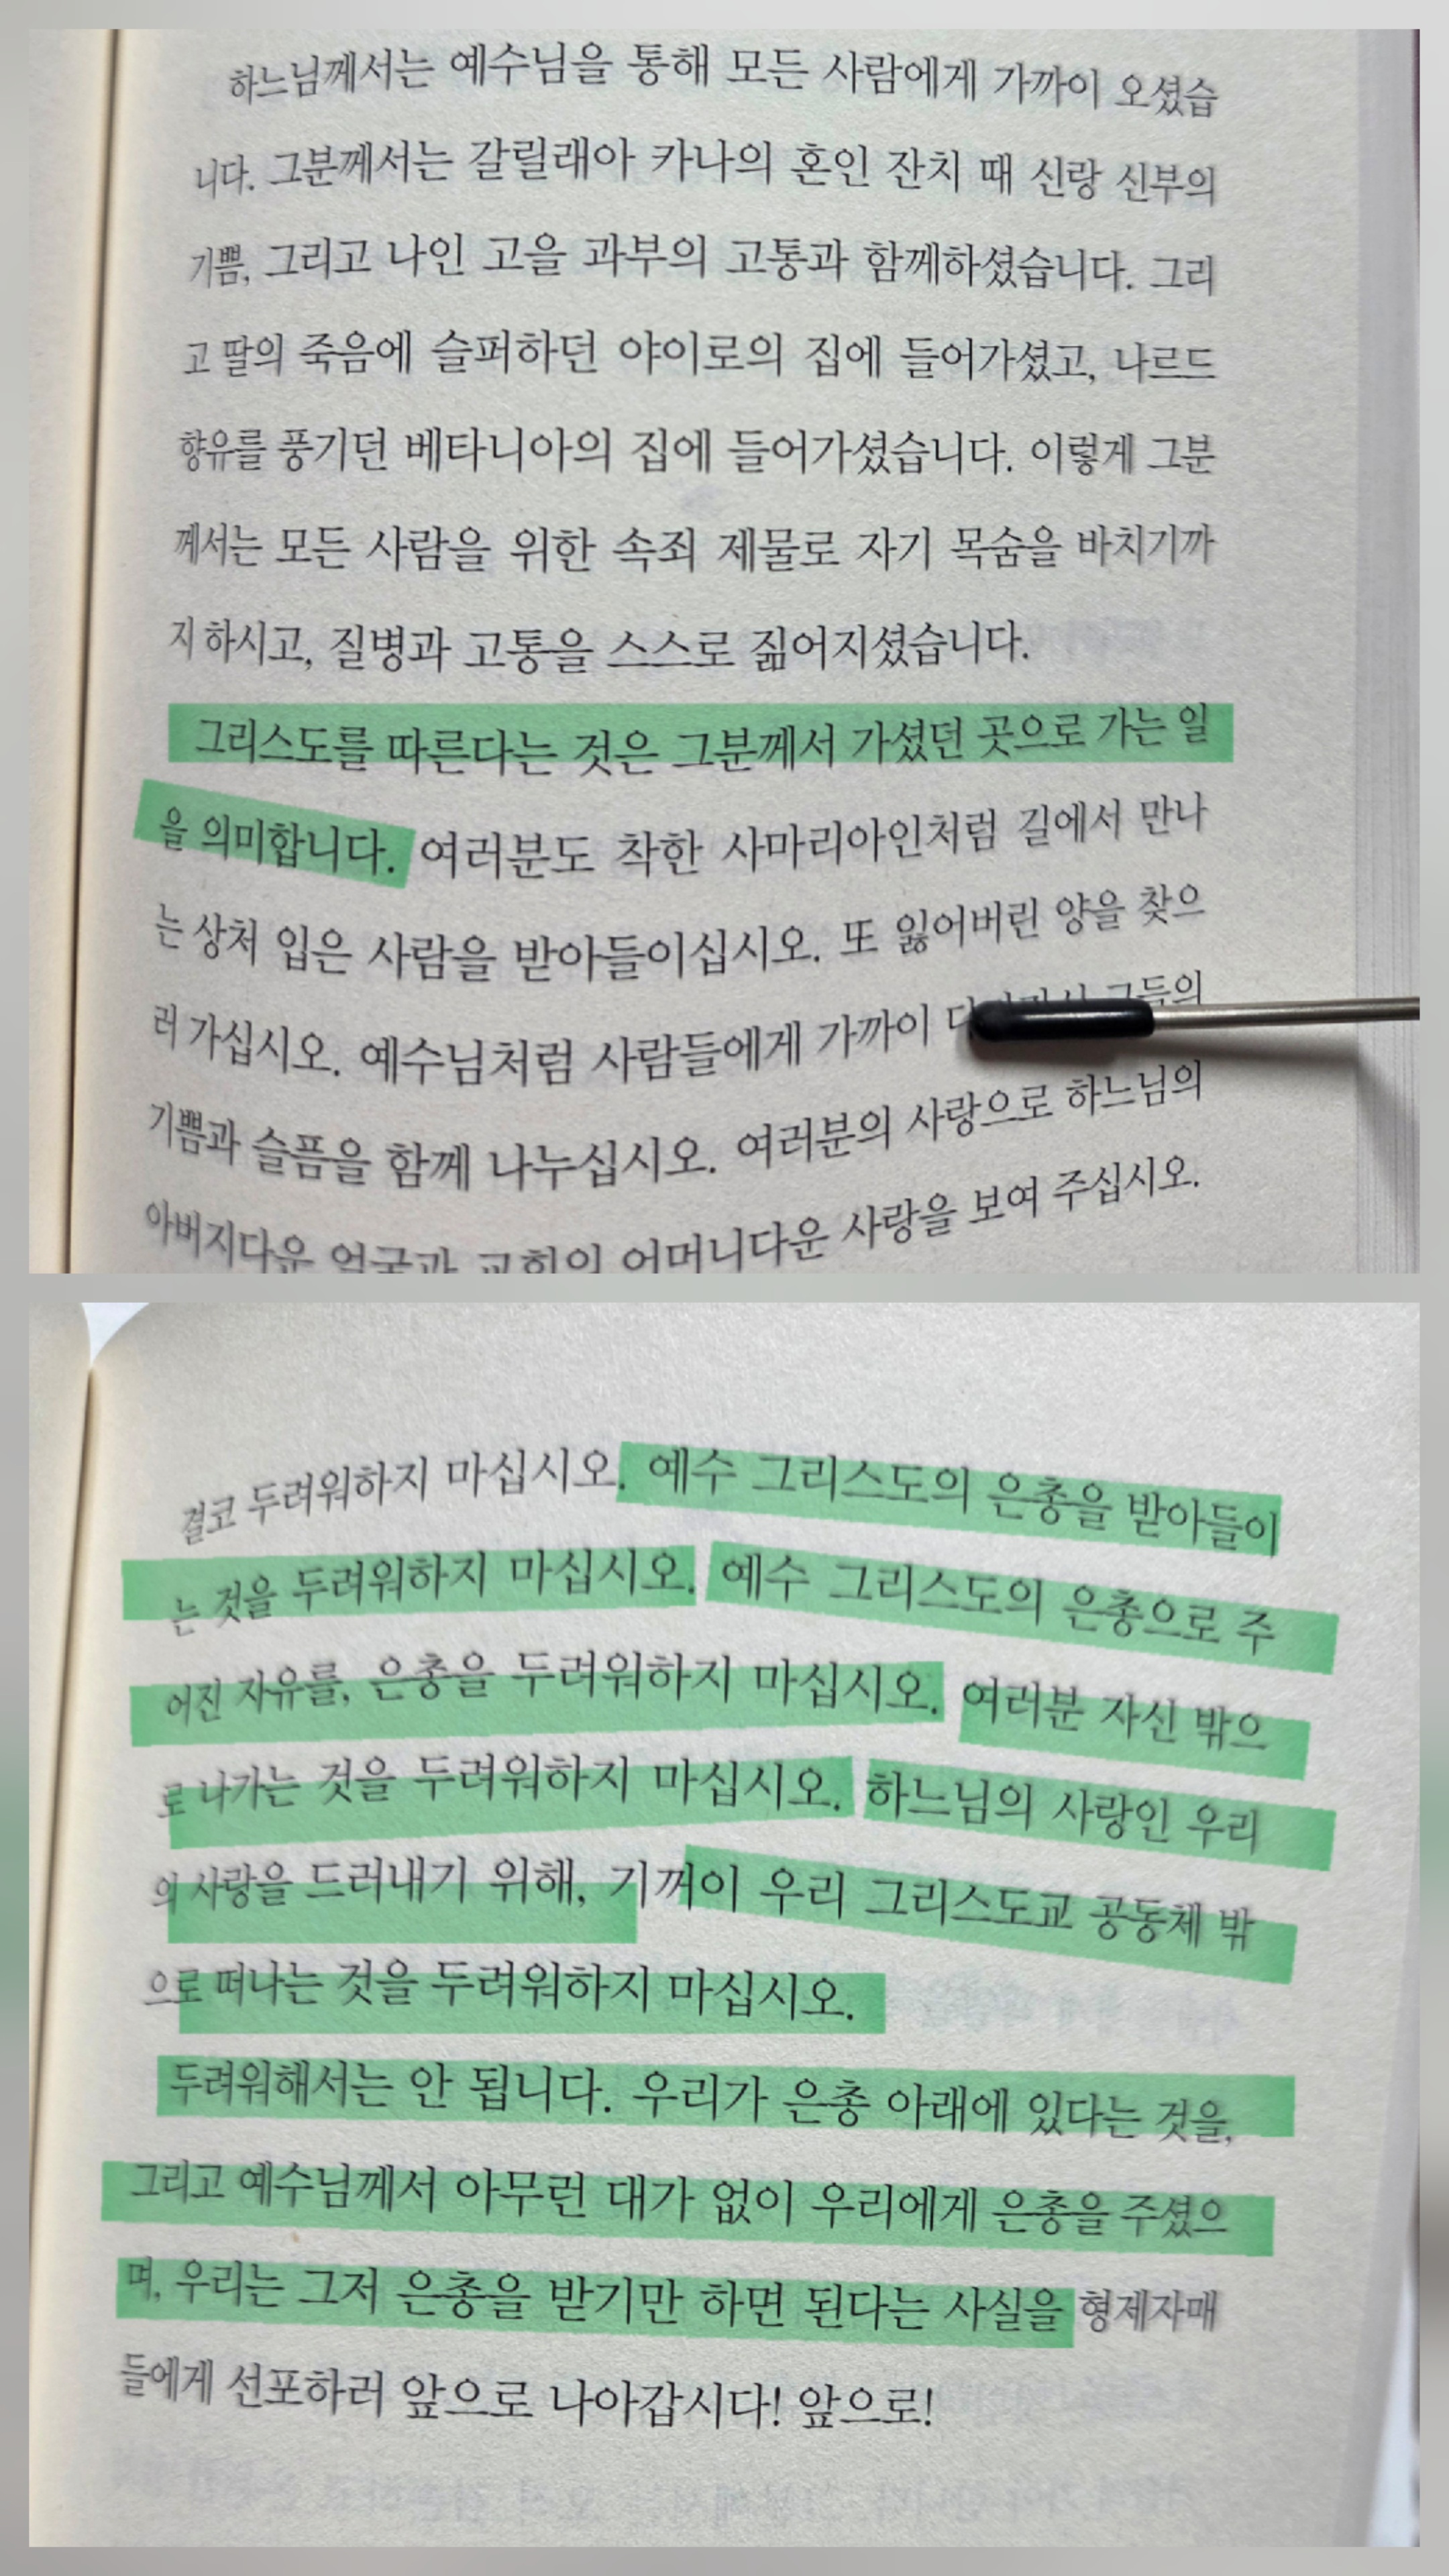 하느님께서는 예수님을 통해 모든 사람에게 가까이 오셨습
니다. 그분께서는 갈릴래아 카나의 혼인 잔치 때 신랑 신부의
기쁨, 그리고 나인 고을 과부의 고통과 함께하셨습니다. 그리
고 딸의 죽음에 슬퍼하던 야이로의 집에 들어가셨고, 나르드
향유를 풍기던 베타니아의 집에 들어가셨습니다. 이렇게 그분
께서는 모든 사람을 위한 속죄 제물로 자기 목숨을 바치기까
지 하시고, 질병과 고통을 스스로 짊어지셨습니다.
그리스도를 따른다는 것은 그분께서 가셨던 곳으로 가는 일
을 의미합니다. 여러분도 착한 사마리아인처럼 길에서 만나
는 상처 입은 사람을 받아들이십시오. 또 잃어버린 양을 찾으
러 가십시오. 예수님처럼 사람들에게 가까이 그들의
기쁨과 슬픔을 함께 나누십시오. 여러분의 사랑으로 하느님의
아버지다운 얼굴과 교회의 어머니다운 사랑을 보여 주십시오.
결코 두려워하지 마십시오. 예수 그리스도의 은총을 받아들이
는 것을 두려워하지 마십시오. 예수 그리스도의 은총으로 주
어진 자유를, 은총을 두려워하지 마십시오. 여러분 자신 밖으
로 나가는 것을 두려워하지 마십시오. 하느님의 사랑인 우리
의 사랑을 드러내기 위해, 기꺼이 우리 그리스도교 공동체 밖
으로 떠나는 것을 두려워하지 마십시오.
두려워해서는 안 됩니다. 우리가 은총 아래에 있다는 것을,
그리고 예수님께서 아무런 대가 없이 우리에게 은총을 주셨으
며, 우리는 그저 은총을 받기만 하면 된다는 사실을 형제자매
들에게 선포하러 앞으로 나아갑시다! 앞으로!